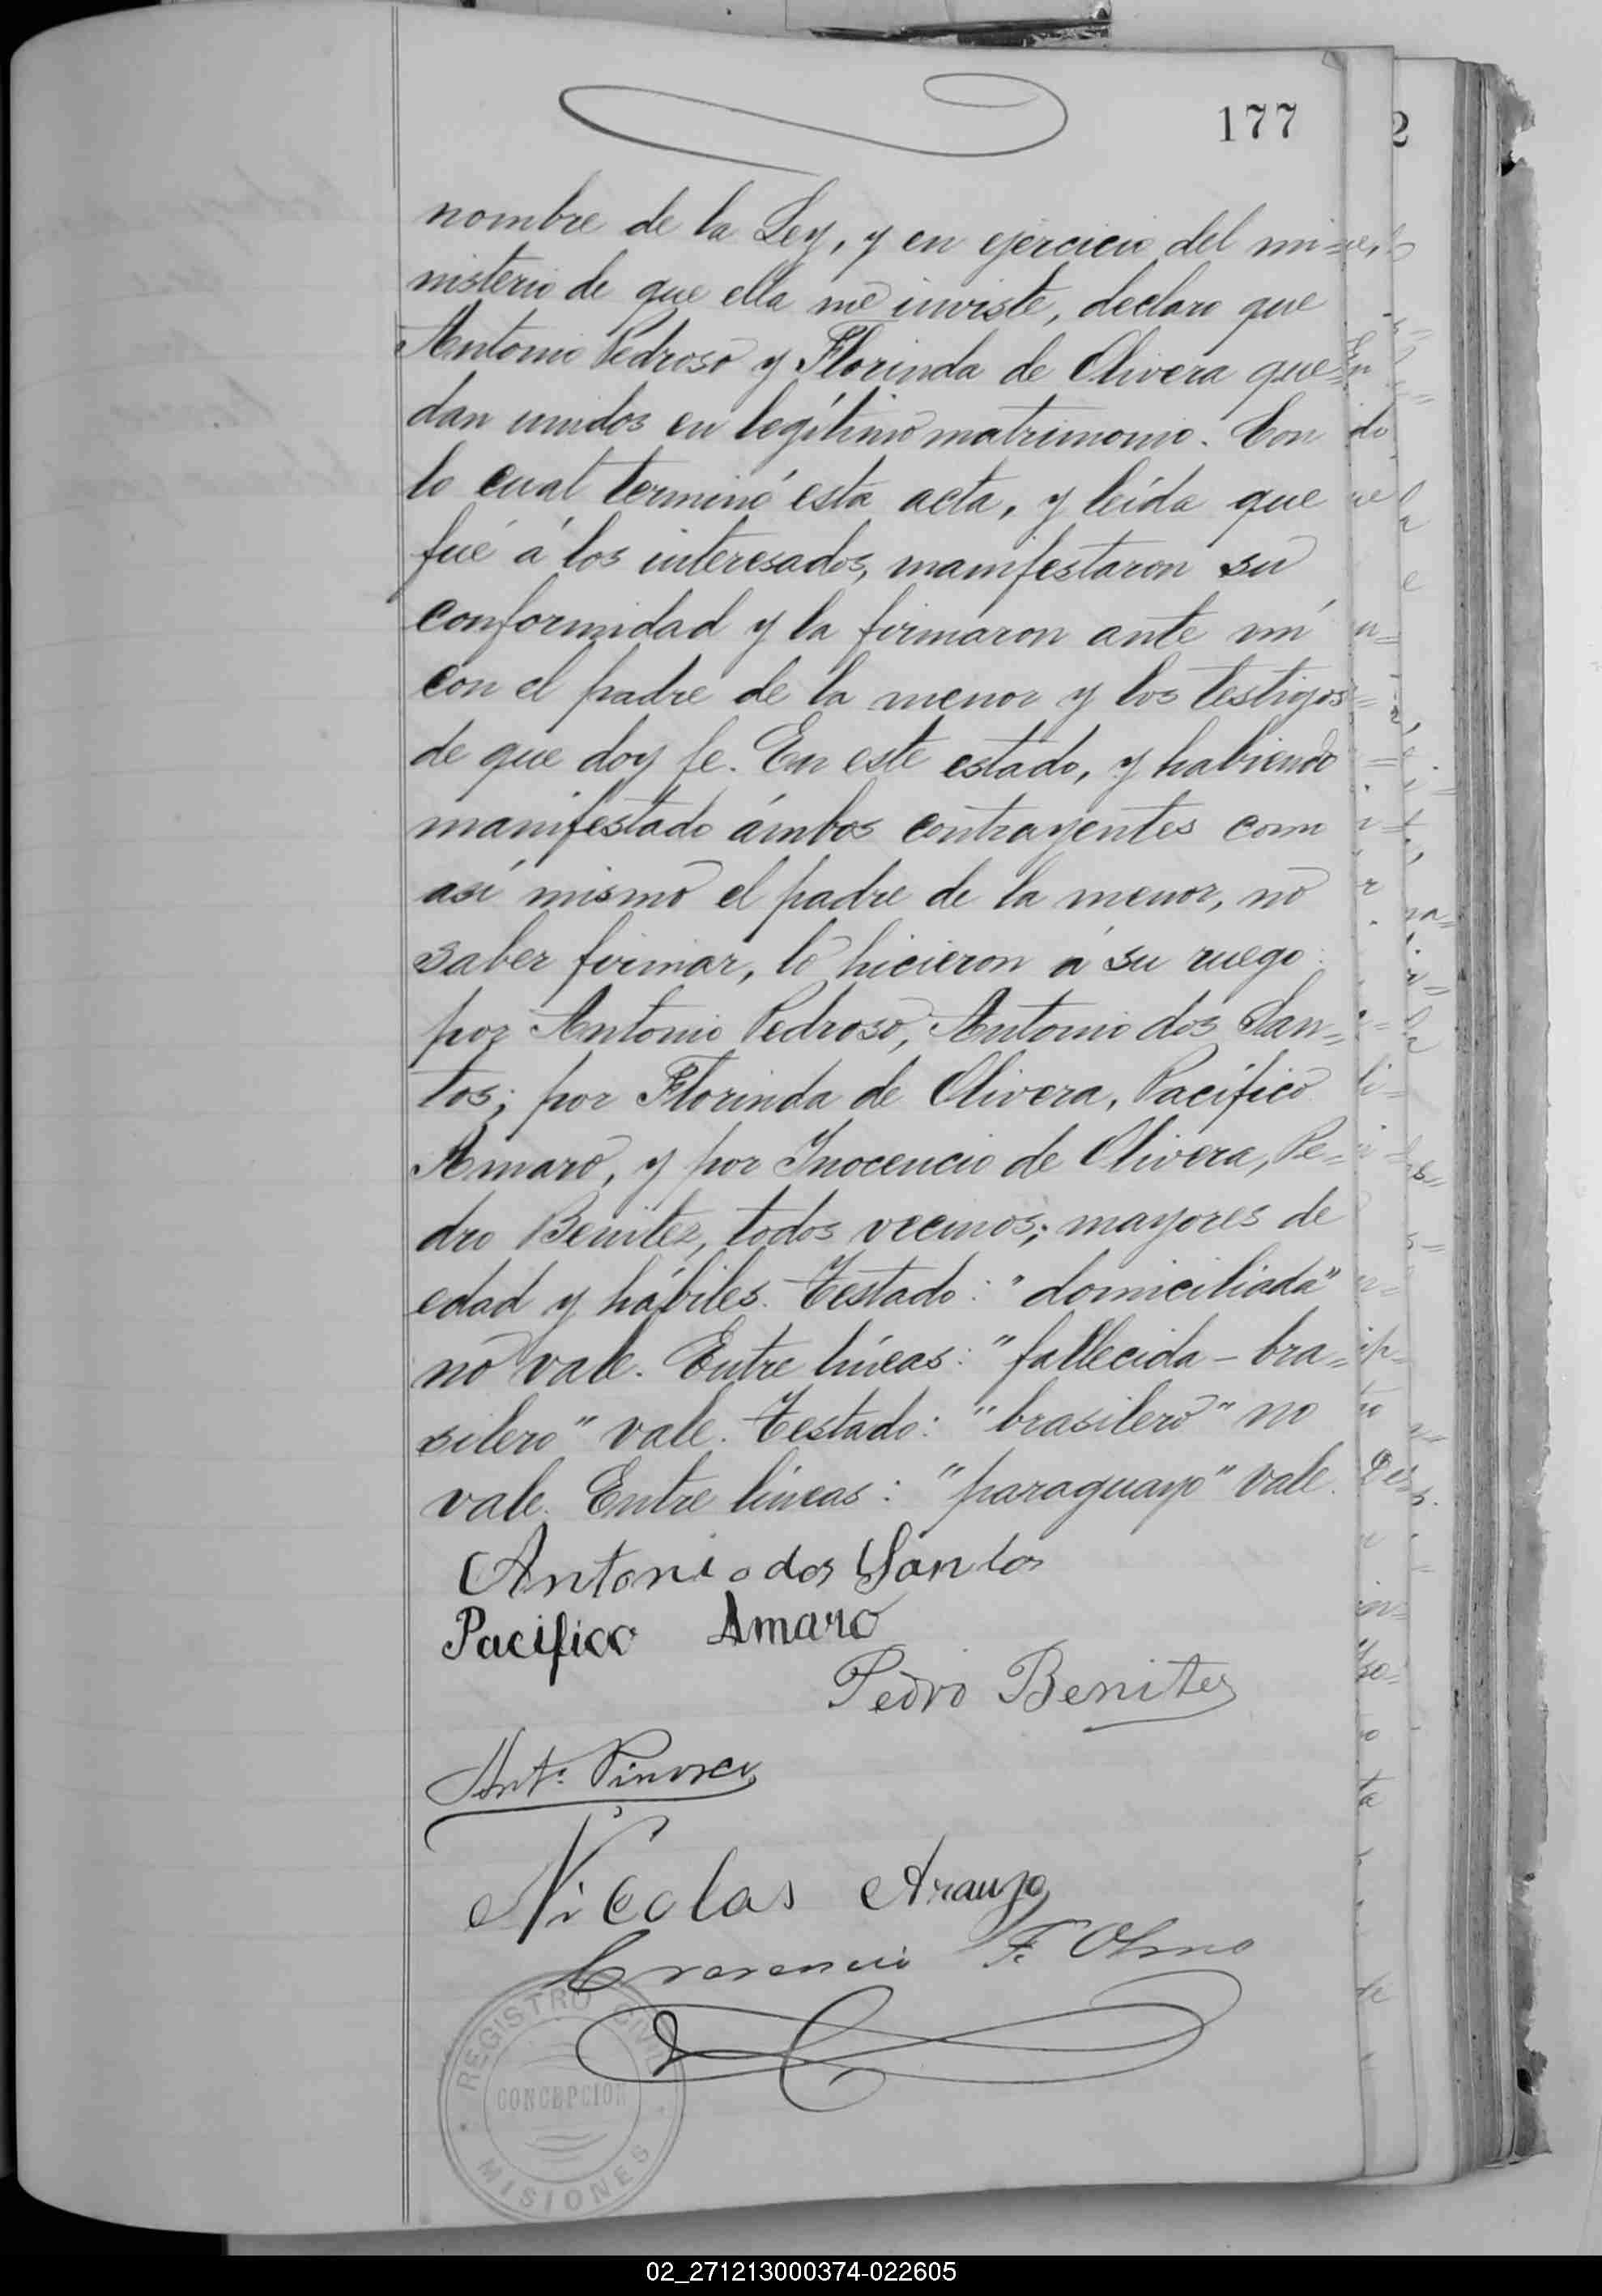 177
nombre de la Ley, y en ejercicio del mi=
nisterio de que ella me inviste, declaro que
Antonio Pedroso y Florinda de Olivera que=
dan unidos en legítimo matrimonio. Con
lo cual terminó esta acta, y leída que
fué á los interesados, manifestaron su
conformidad y la firmaron ante mí
con el padre de la menor y los testigos
de que doy fe. En este estado, y habiendo
manifestado ámbos contrayentes como
así mismo el padre de la menor, no
saber firmar, lo hicieron á su ruego:
por Antonio Pedroso, Antonio dos San=
tos; por Florinda de Olivera, Pacífico
Amaro, y por Inocencio de Olivera, Pe=
dro Benitez, todos vecinos; mayores de
edad y hábiles. Testado: "domiciliada"
no vale. Entre líneas: "fallecida - bra=
silero" vale. Testado: "brasilero" no
vale. Entre líneas: "paraguayo" vale.
Antonio dos Santos
Pacifico Amaro
Pedro Benites
Nicolas Araujo
F. Olmo
REGISTRO CIVIL
CONCEPCION
MISIONES
02_271213000374-022605